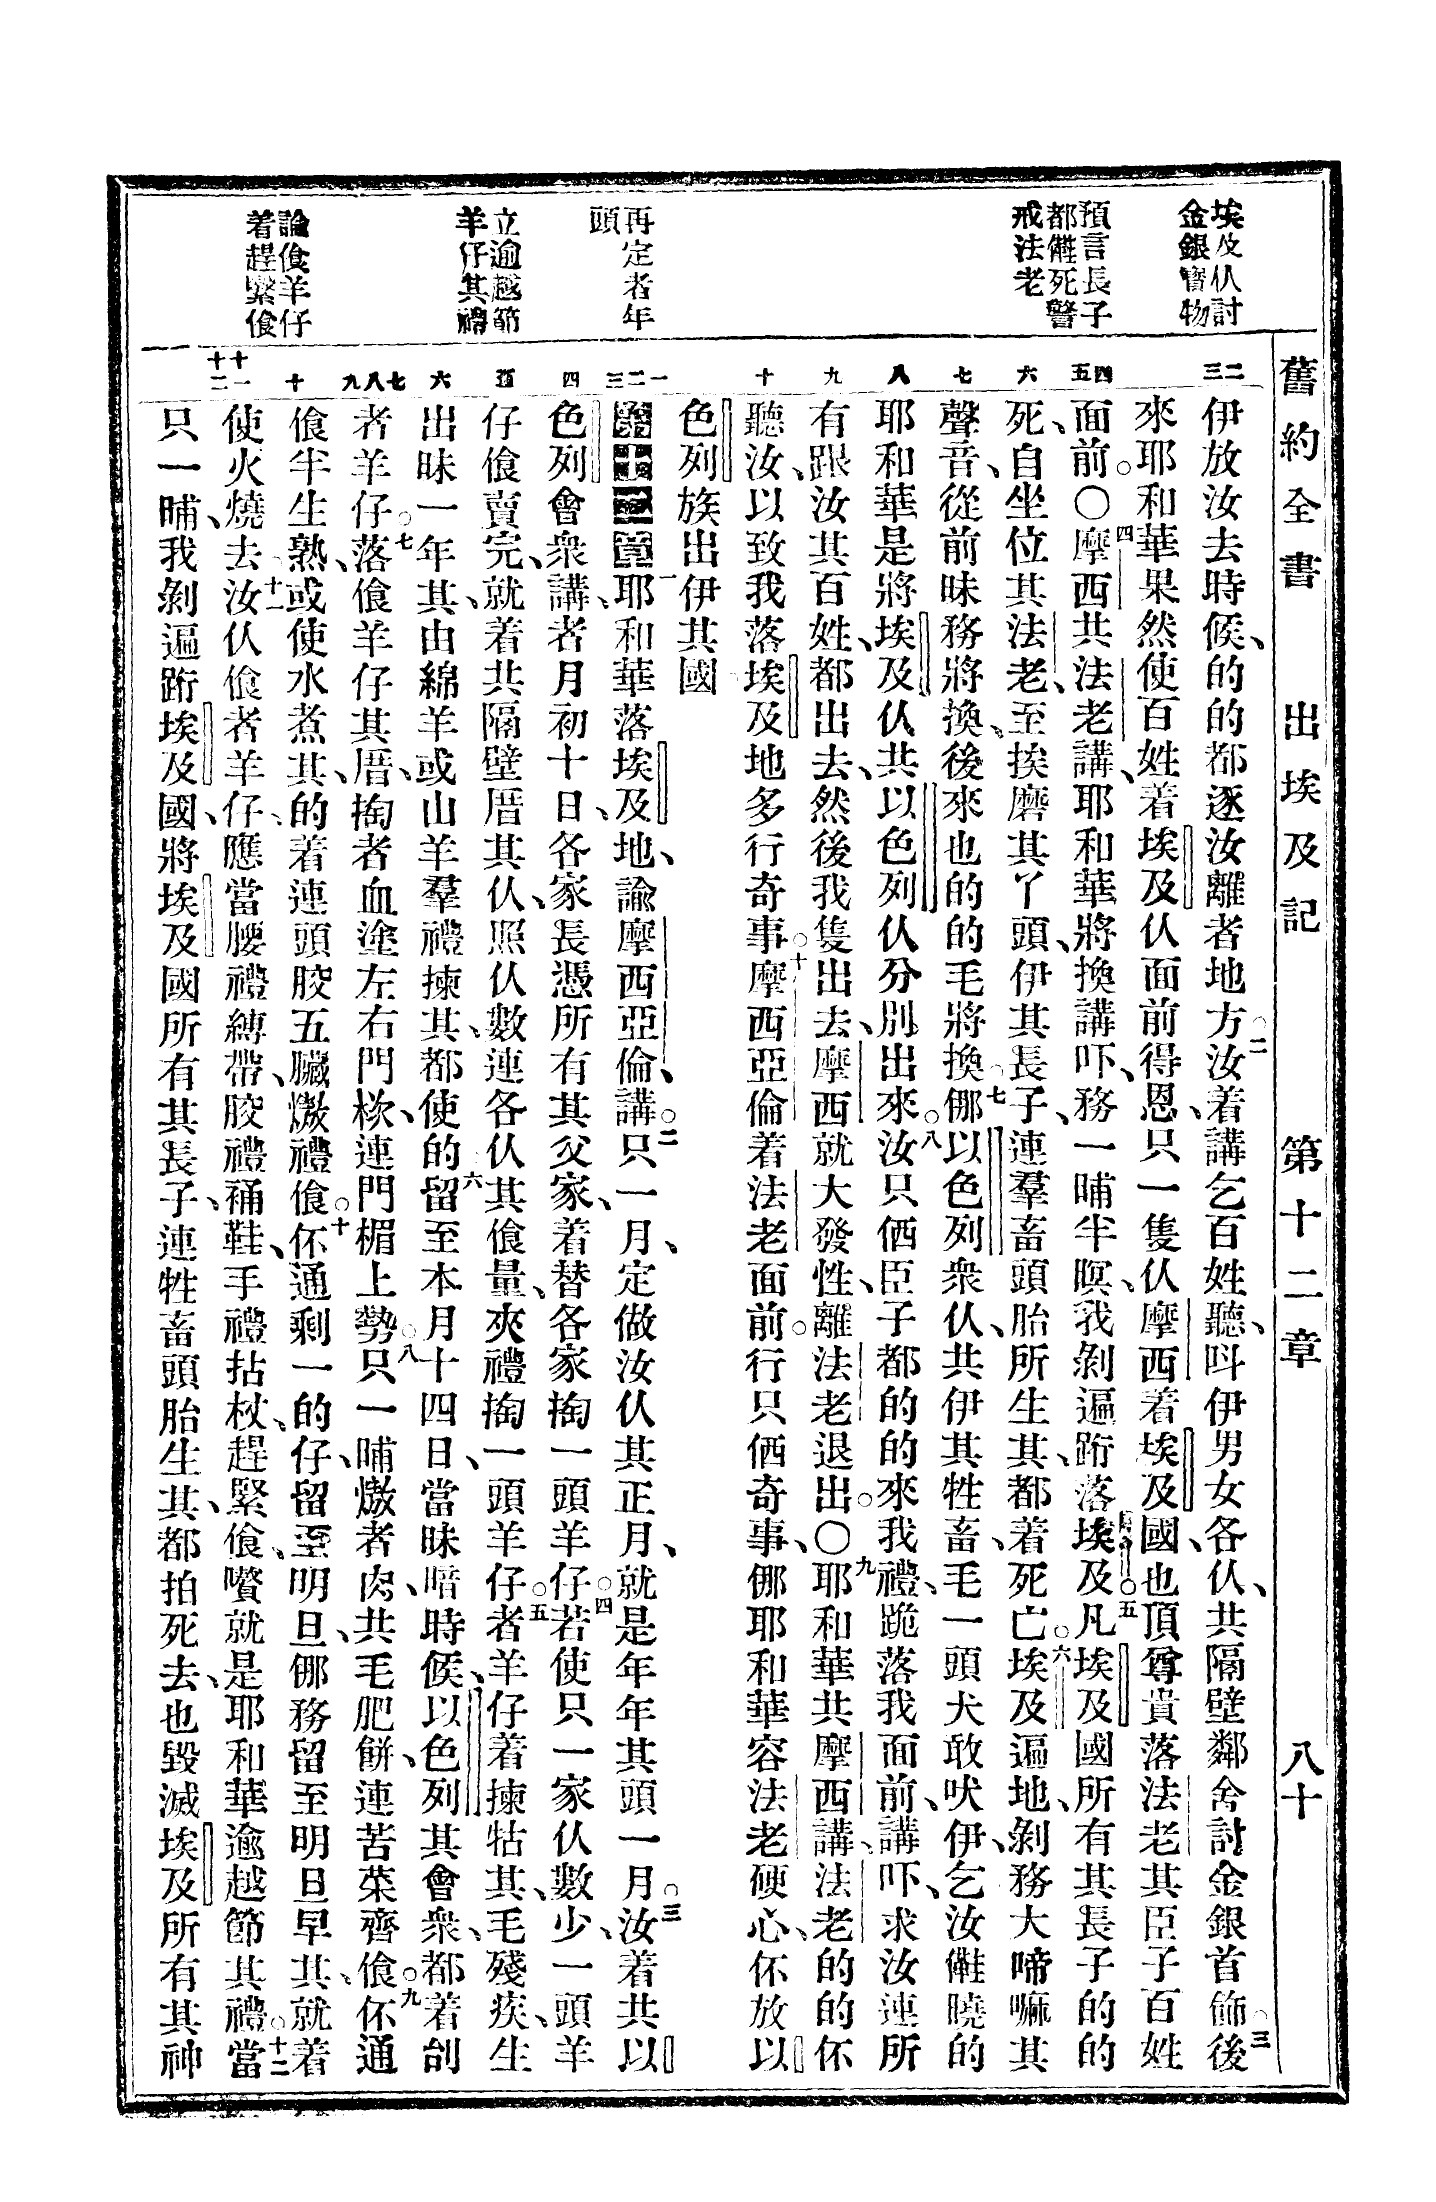 舊約全書　出埃及記　第十二章　八十
埃及仈討
金銀寶物
預言長子
都死警
戒法老
再定者年
頭
立逾越節
羊仔其禮
論飤羊仔
着趕緊飤
伊放汝去時候、的的都逐汝離者地方。二汝着講乞百姓聽、呌伊男女各仈、共隔壁鄰舍討金銀首飾。三後
來耶和華果然使百姓着埃及仈面前得恩、只一隻仈摩西着埃及國、也頂尊貴落法老其臣子百姓
面前。〇四摩西共法老講、耶和華將換講吓、務一晡半暝、我剝遍跡落埃及。五凡埃及國所有其長子的的
死、自坐位其法老、至挨磨其丫頭、伊其長子、連羣畜頭胎所生其、都着死亡。六埃及遍地、剝務大啼嘛其
聲音、從前昧務將換、後來也的的毛將換。七倻以色列衆仈、共伊其牲畜、毛一頭犬敢吠伊、乞汝曉的
耶和華是將埃及仈共以色列仈分別出來。八汝只俩臣子都的的來我禮、跪落我面前、講吓、求汝連所
有跟汝其百姓、都出去、然後我隻出去、摩西就大發性、離法老退出。〇九耶和華共摩西講、法老的的伓
聽汝、以致我落埃及地多行奇事。十摩西亞倫着法老面前。行只俩奇事、倻耶和華容法老硬心、伓放以
色列族出伊其國
第十二章一耶和華落埃及地、諭摩西亞倫、講。二只一月、定做汝仈其正月、就是年年其頭一月。三汝着共以
色列會衆講、者月初十日、各家長憑所有其父家、着替各家掏一頭羊仔。四若使只一家仈數少、一頭羊
仔飤賣完、就着共隔壁厝其仈、照仈數連各仈其飤量、夾禮掏一頭羊仔。五者羊仔着揀牯其、毛殘疾、生
出昧一年其、由綿羊或山羊羣禮揀其、都使的。六留至本月十四日、當昧暗時候、以色列其會衆、都着刣
者羊仔。七落飤羊仔其厝、掏者血塗左右門栨、連門楣上勢。八只一晡、熥者肉、共毛肥餅、連苦菜齊飤。九伓通
飤半生熟、或使水煮其、的着連頭骹五臟熥禮飤。十伓通剩一的仔、留至明旦、倻務留至明旦早其、就着
使火燒去。十一汝仈飤者羊仔、應當腰禮縛帶、骹禮䅍鞋、手禮拈杖、趕緊飤、嚽就是耶和華逾越節其禮。十二當
只一晡、我剝遍跡埃及國、將埃及國所有其長子、連牲畜頭胎生其、都拍死去、也毀滅埃及所有其神
二三
四五
六
七
八
九
十
一二三
四
五
六
七八九
十
十一
十二